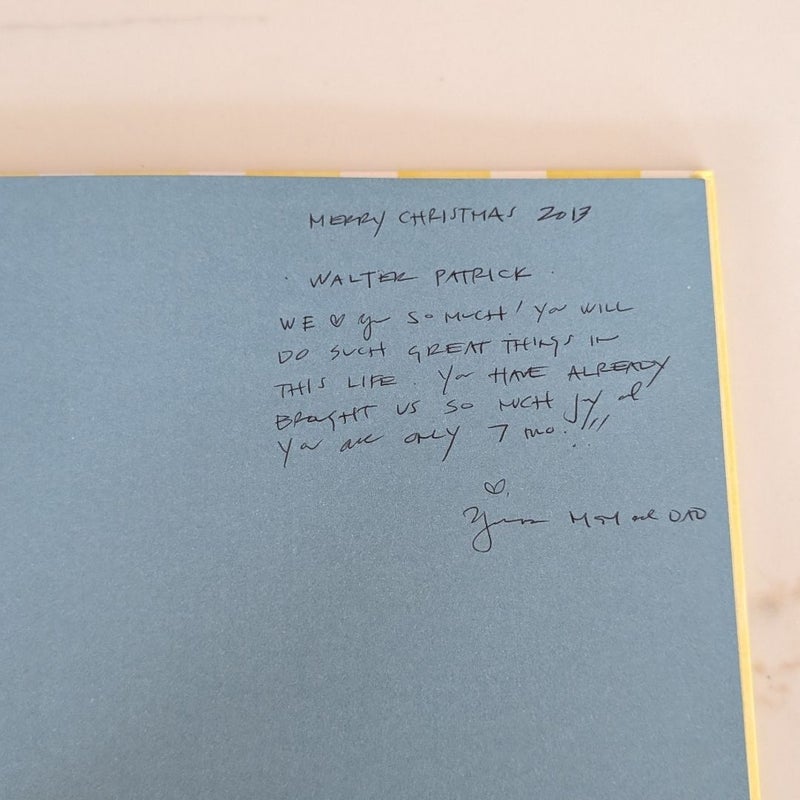 MERRY CHRISTMAS 2013
WALTER PATRICK
WE ♡ you SO MUCH! You WILL
DO SUCH GREAT THINGS IN
THIS LIFE. You HAVE ALREADY
BROUGHT US SO MUCH joy and
you are only 7 mo.!!!
♡,
Your MOM and DAD